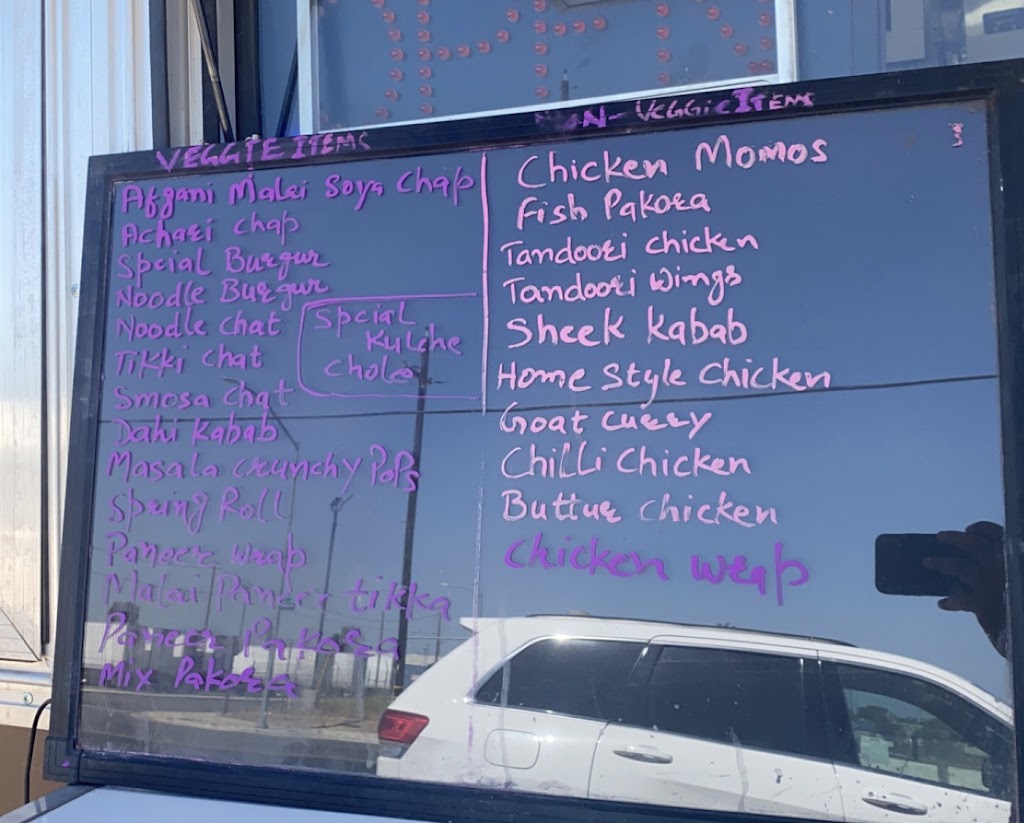 VEGGIE ITEMS
Afgani Malai Soya Chap
Achari Chap
Spcial Burgur
Noodle Burgur
Noodle Chat
Tikki Chat
Smosa Chat
Dahi Kabab
Masala Crunchy PoPs
Spring Roll
Paneer Wrap
Malai Paneer tikka
Paneer Pakora
Mix Pakora
Spcial
Kulche
Chole
NON-VEGGIE ITEMS
Chicken Momos
Fish Pakora
Tandoori Chicken
Tandoori Wings
Sheek Kabab
Home Style Chicken
Goat Curry
Chilli Chicken
Buttur Chicken
Chicken Wrap